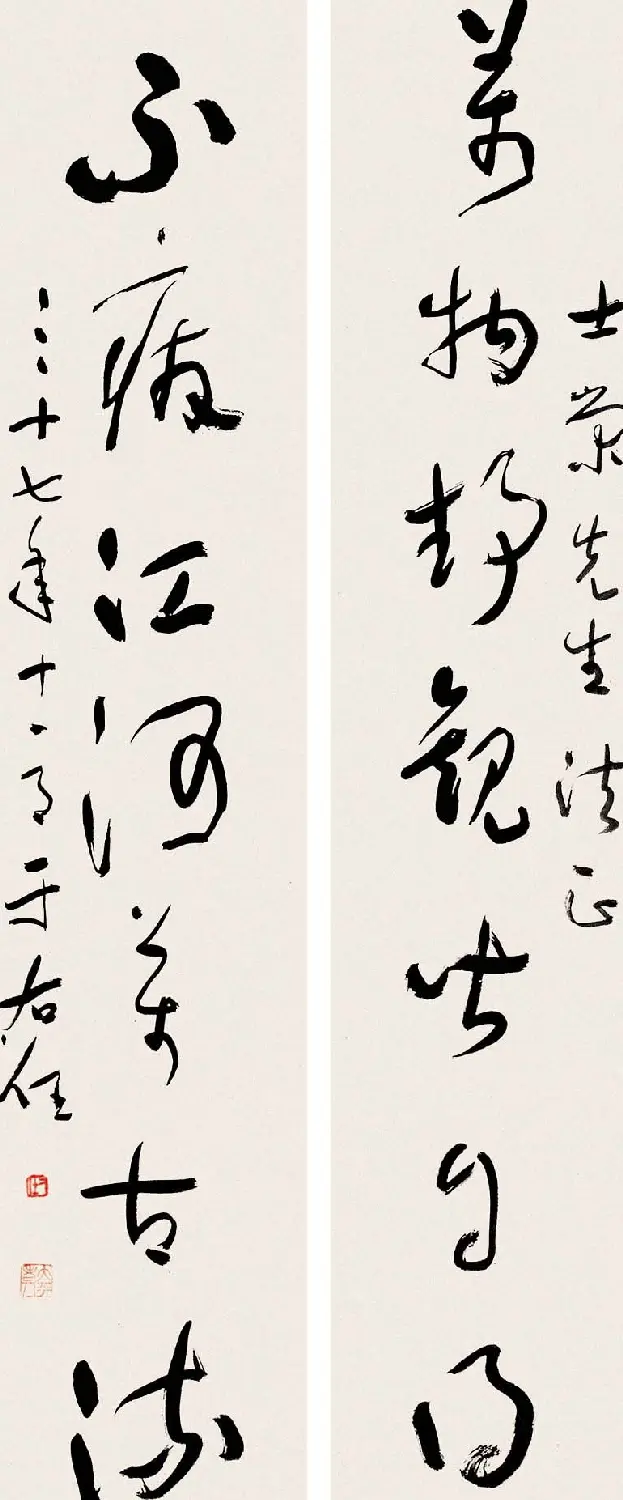 士榮先生 法正
萬物靜觀皆自得
不廢江河萬古流
三十七年十一月 于右任